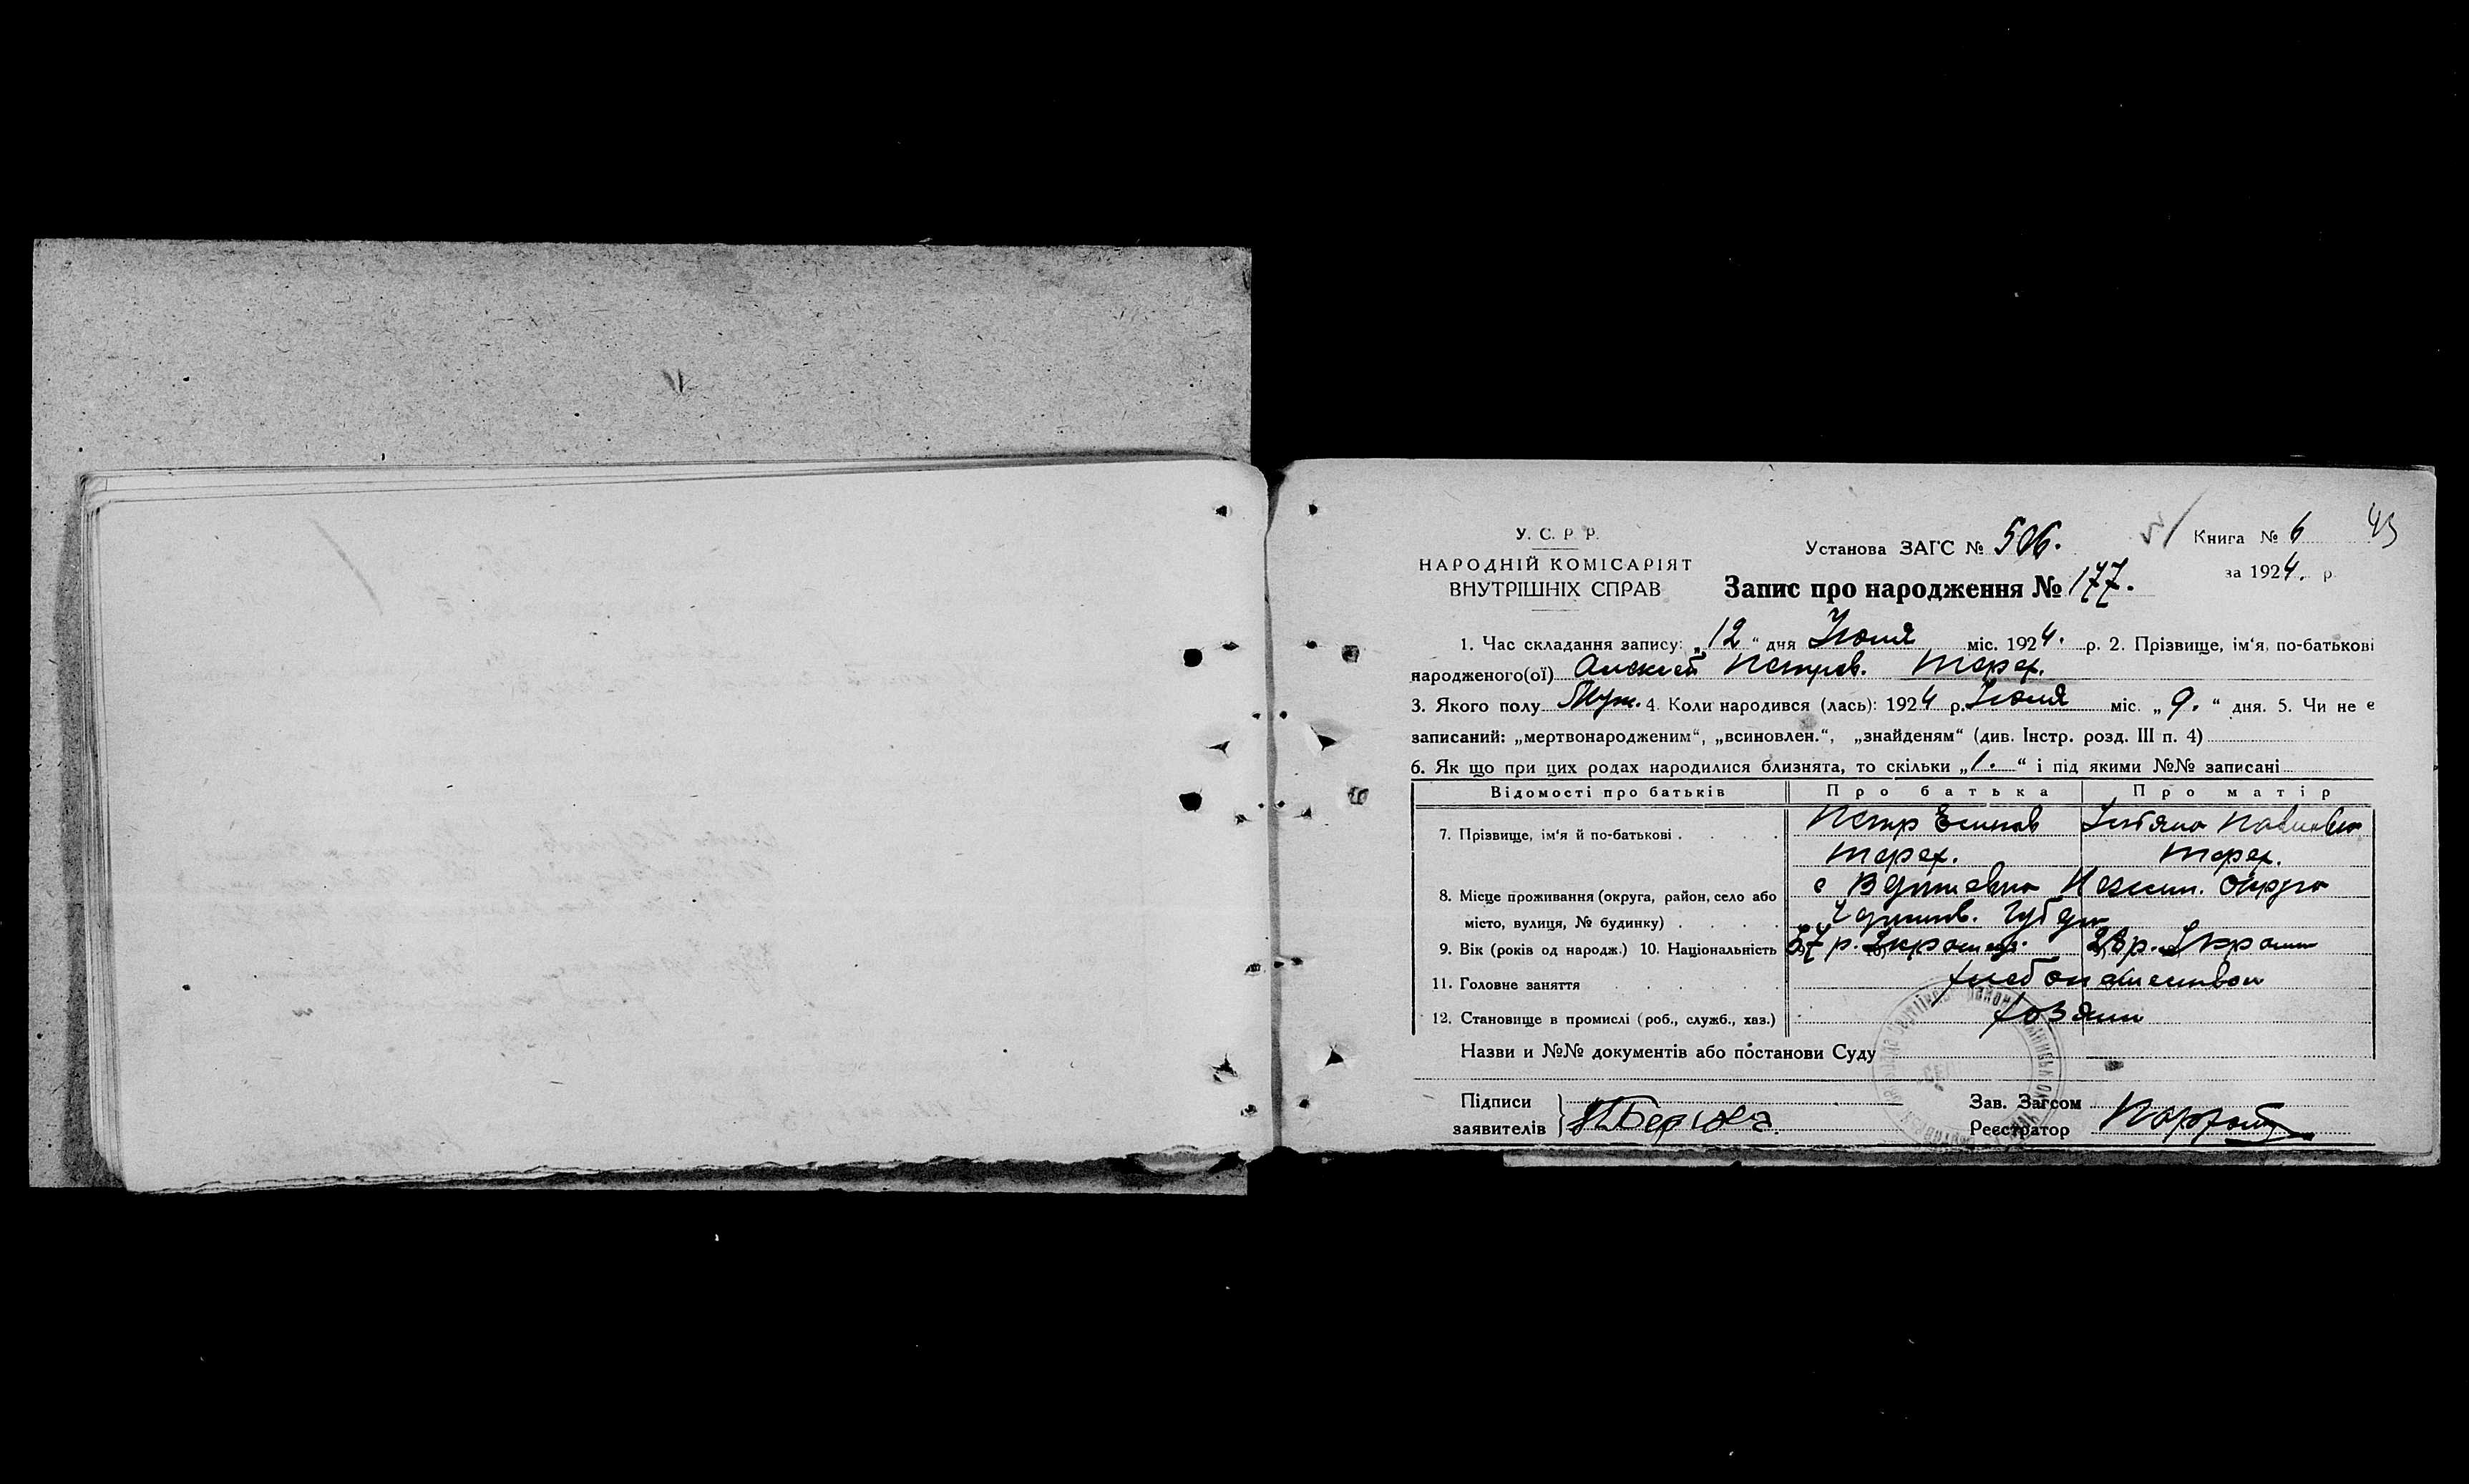 У. С. Р. Р.
НАРОДНІЙ КОМІСАРІЯТ
ВНУТРІШНІХ СПРАВ
Установа ЗАГС № 506.
Книга № 6
43
за 1924. р.
Запис про народження № 177.
1. Час складання запису: „12“ дня Июля міс. 1924. р. 2. Прізвище, ім‘я, по-батькові
народженого(ої) Алексей Петров. Терех.
3. Якого полу Муж. 4. Коли народився (лась): 1924 р. Июля міс. „9.“ дня. 5. Чи не є
записаний: „мертвонародженим“, „всиновлен.“, „знайденям“ (див. Інстр. розд. III п. 4)
6. Як що при цих родах народилися близнята, то скільки „1.“ і під якими №№ записані
Відомості про батьків Про батька Про матір
7. Прізвище, ім‘я й по-батькові Петр Терех. Терех.
8. Місце проживання (округа, район, село або с Вертиевка Нежин. округа
місто, вулиця, № будинку) Чернигов. Губерн
9. Вік (років од народж.) 10. Національність 37 р. 28 р.
11. Головне заняття хлебопашеством
12. Становище в промислі (роб., служб., хаз.) хозяин
Назви и №№ документів або постанови Суду
Підписи
заявителів
Зав. Загсом
Реєстратор